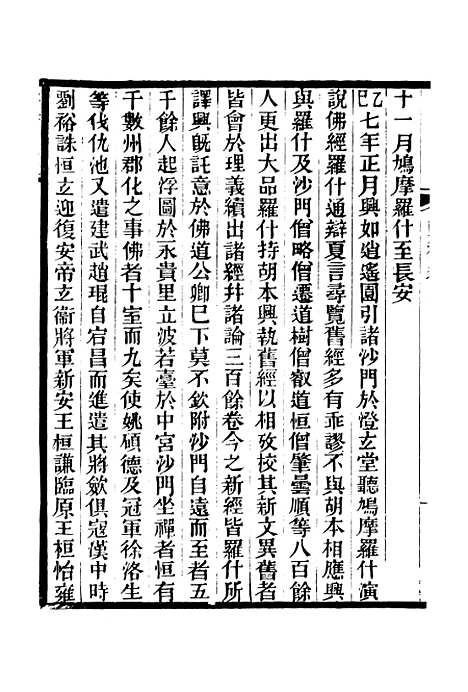 十一月鳩摩羅什至長安
乙巳七年正月興如逍遙園引諸沙門於澄玄堂聽鳩摩羅什演
說佛經羅什通辯夏言尋覽舊經多有乖謬不與胡本相應興
與羅什及沙門僧略僧遷道樹僧叡道恒僧肇曇順等八百餘
人更出大品羅什持胡本興執舊經以相攷校其新文異舊者
皆會於理義續出諸經幷諸論三百餘卷今之新經皆羅什所
譯興旣託意於佛道公卿已下莫不欽附沙門自遠而至者五
千餘人起浮圖於永貴里立波若臺於中宮沙門坐禪者恒有
千數州郡化之事佛者十室而九矣使姚碩德及冠軍徐洛生
等伐仇池又遣建武趙琨自宕昌而進遣其將斂俱寇漢中時
劉裕誅桓玄迎復安帝玄衞將軍新安王桓謙臨原王桓怡雍